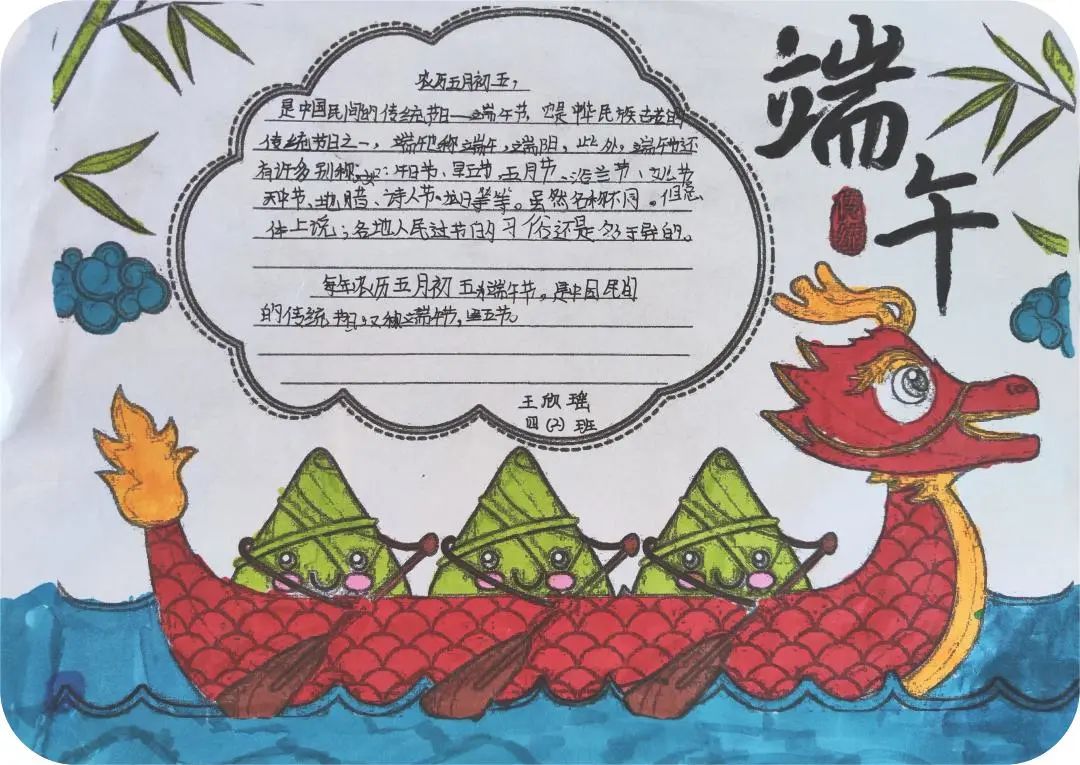 端午
传统
农历五月初五,
是中国民间的传统节日——端午节,也是中华民族古老的
传统节日之一,端午也称端五,端阳,此外,端午节还
有许多别称,如:午日节、重五节、五月节、浴兰节、女儿节
天中节、地腊、诗人节、龙日等等。虽然名称不同。但总
体上说:各地人民过节的习俗还是多于异的。
每年农历五月初五为端午节。是中国民间
的传统节日,又称端午节,重五节。
王欣瑶
四(2)班